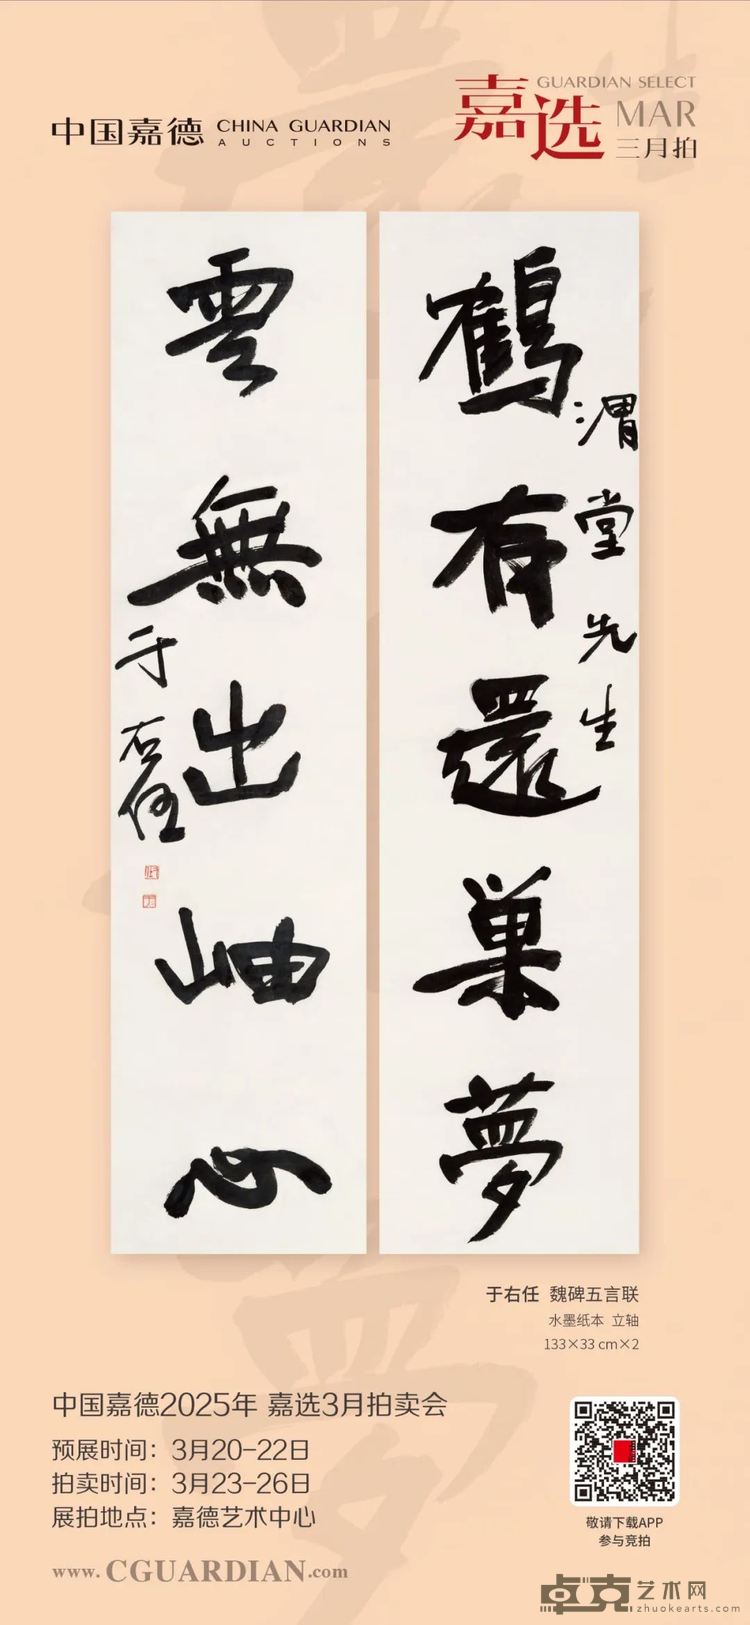 中国嘉德 CHINA GUARDIAN
AUCTIONS
嘉选
GUARDIAN SELECT
MAR
三月拍
鶴有還巢夢
渭堂先生
雲無出岫心
于右任
于右任 魏碑五言联
水墨纸本 立轴
133×33 cm×2
中国嘉德2025年 嘉选3月拍卖会
预展时间：3月20-22日
拍卖时间：3月23-26日
展拍地点：嘉德艺术中心
www.CGUARDIAN.com
敬请下载APP
参与竞拍
卓克艺术网
zhuokearts.com